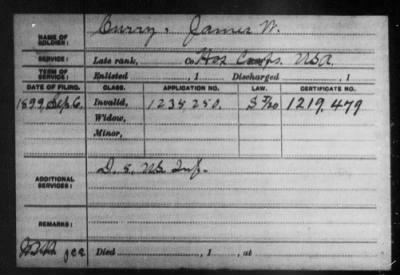 NAME OF SOLDIER: Curry, James W.
SERVICE: Late rank, Co Hos Corps. USA
TERM OF SERVICE: Enlisted , 1 Discharged , 1
DATE OF FILING. CLASS. APPLICATION NO. LAW. CERTIFICATE NO.
1899, Sep. 6. Invalid, 1238,250. 1219,479
Widow,
Minor,
ADDITIONAL SERVICES: D. 5. US Inf.
REMARKS:
Died , 1 , at